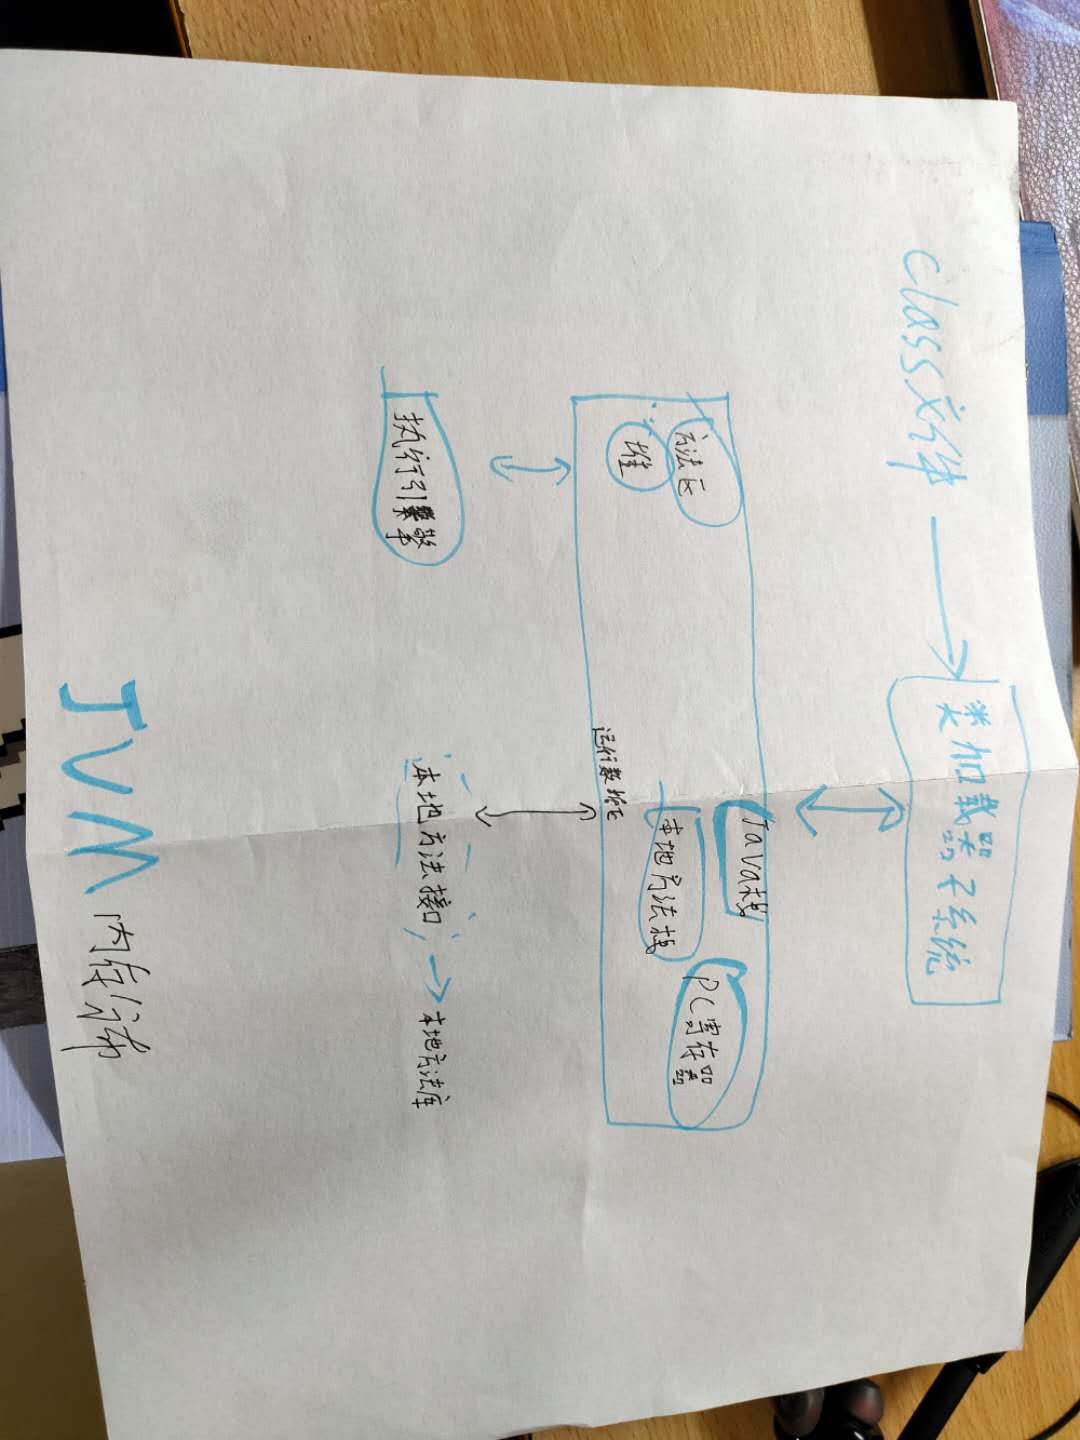 class文件
类加载器子系统
方法区
堆
Java栈
本地方法栈
PC寄存器
运行数据区
执行引擎
本地方法接口
本地方法库
JVM
内存分布